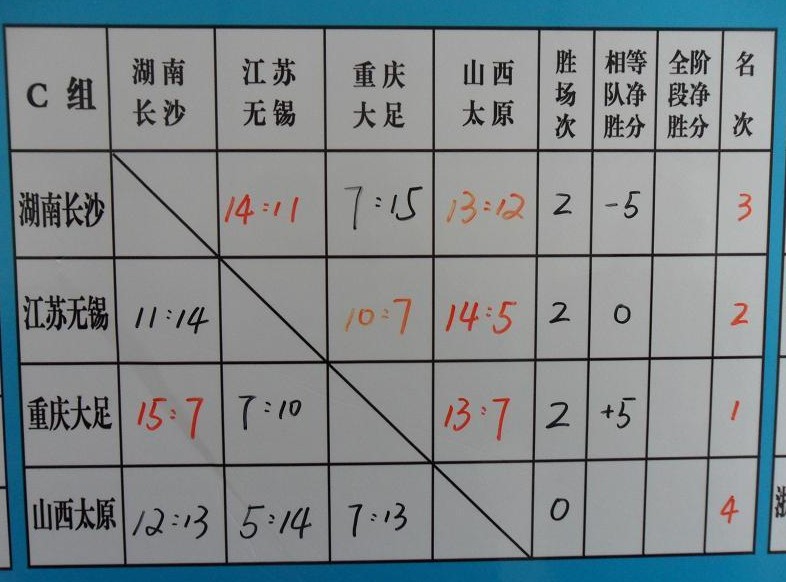 C 组 湖南长沙 江苏无锡 重庆大足 山西太原 胜场次 相等队净胜分 全阶段净胜分 名次
湖南长沙 14:11 7:15 13:12 2 -5 3
江苏无锡 11:14 10:7 14:5 2 0 2
重庆大足 15:7 7:10 13:7 2 +5 1
山西太原 12:13 5:14 7:13 0 4